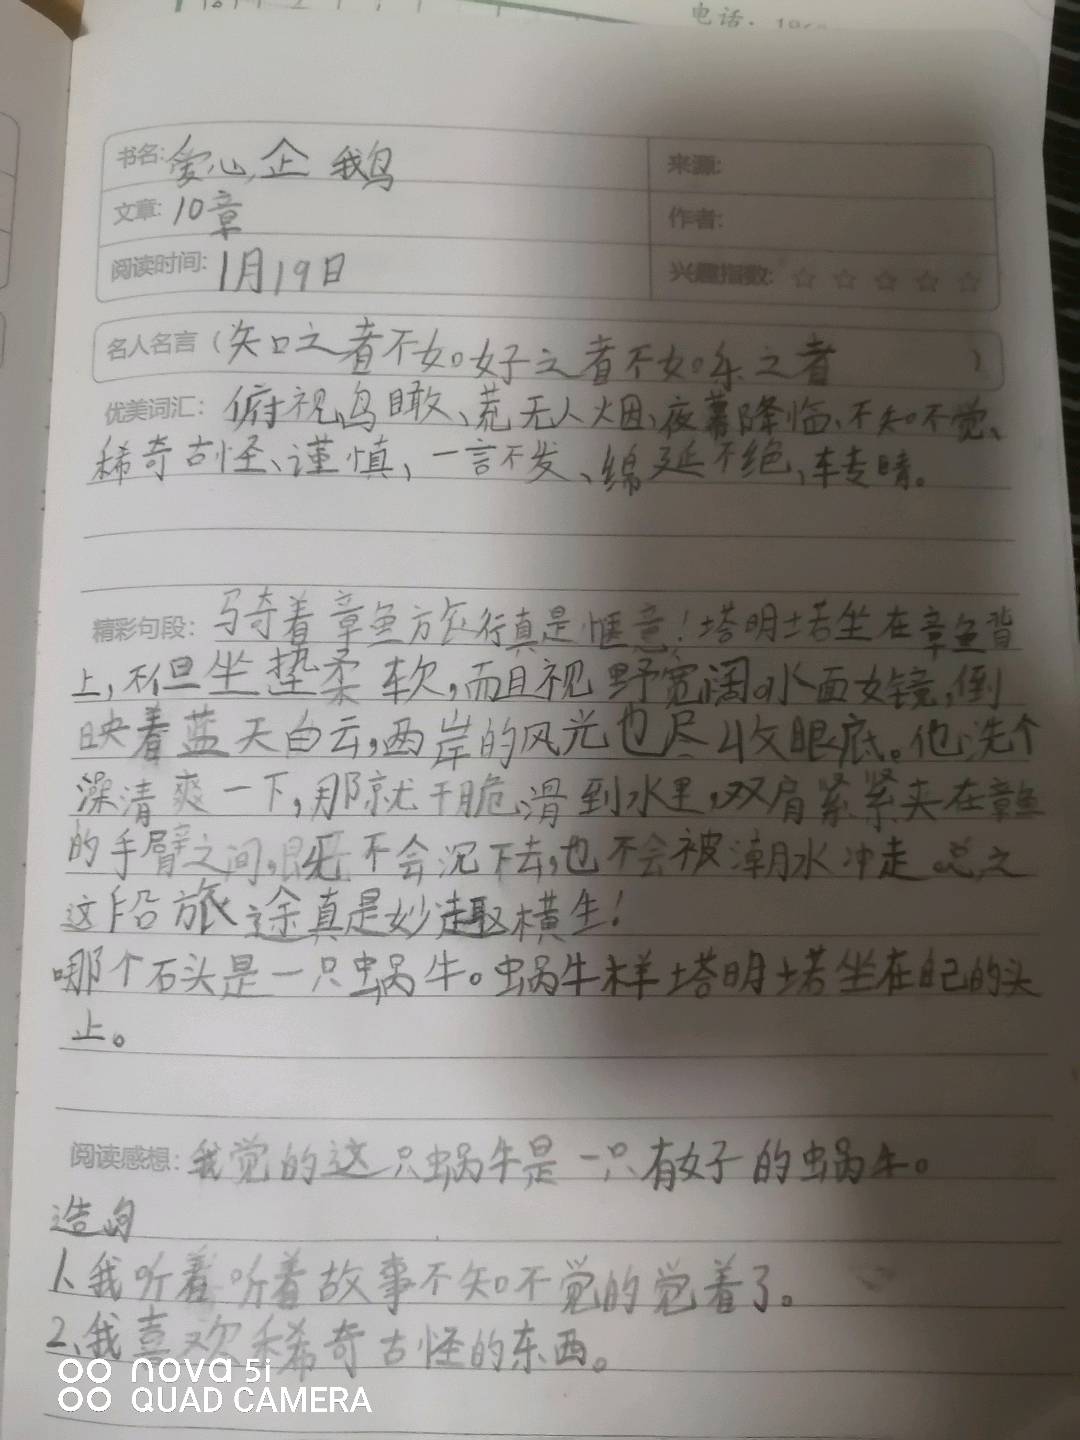 电话：
书名: 爱心企鹅
来源:
文章: 10章
作者:
阅读时间: 1月19日
兴趣指数: ☆ ☆ ☆ ☆ ☆
名人名言（知之者不如好之者不如乐之者）
优美词汇: 俯视、鸟瞰、荒无人烟、夜幕降临、不知不觉、
稀奇古怪、谨慎、一言不发、绵延不绝、转晴。
精彩句段: 骑着章鱼旅行真是惬意！塔明塔坐在章鱼背
上，不但坐垫柔软，而且视野宽阔。水面如镜，倒
映着蓝天白云，两岸的风光也尽收眼底。他洗个
澡清爽一下，那就干脆滑到水里，双肩紧紧夹在章鱼
的手臂之间，既不会沉下去，也不会被潮水冲走 总之
这段旅途真是妙趣横生！
哪个石头是一只蜗牛。蜗牛样塔明塔坐在自己的头
上。
阅读感想: 我觉的这只蜗牛是一只有好的蜗牛。
造句
1、我听着听着故事不知不觉的觉着了。
2、我喜欢稀奇古怪的东西。
nova 5i
QUAD CAMERA